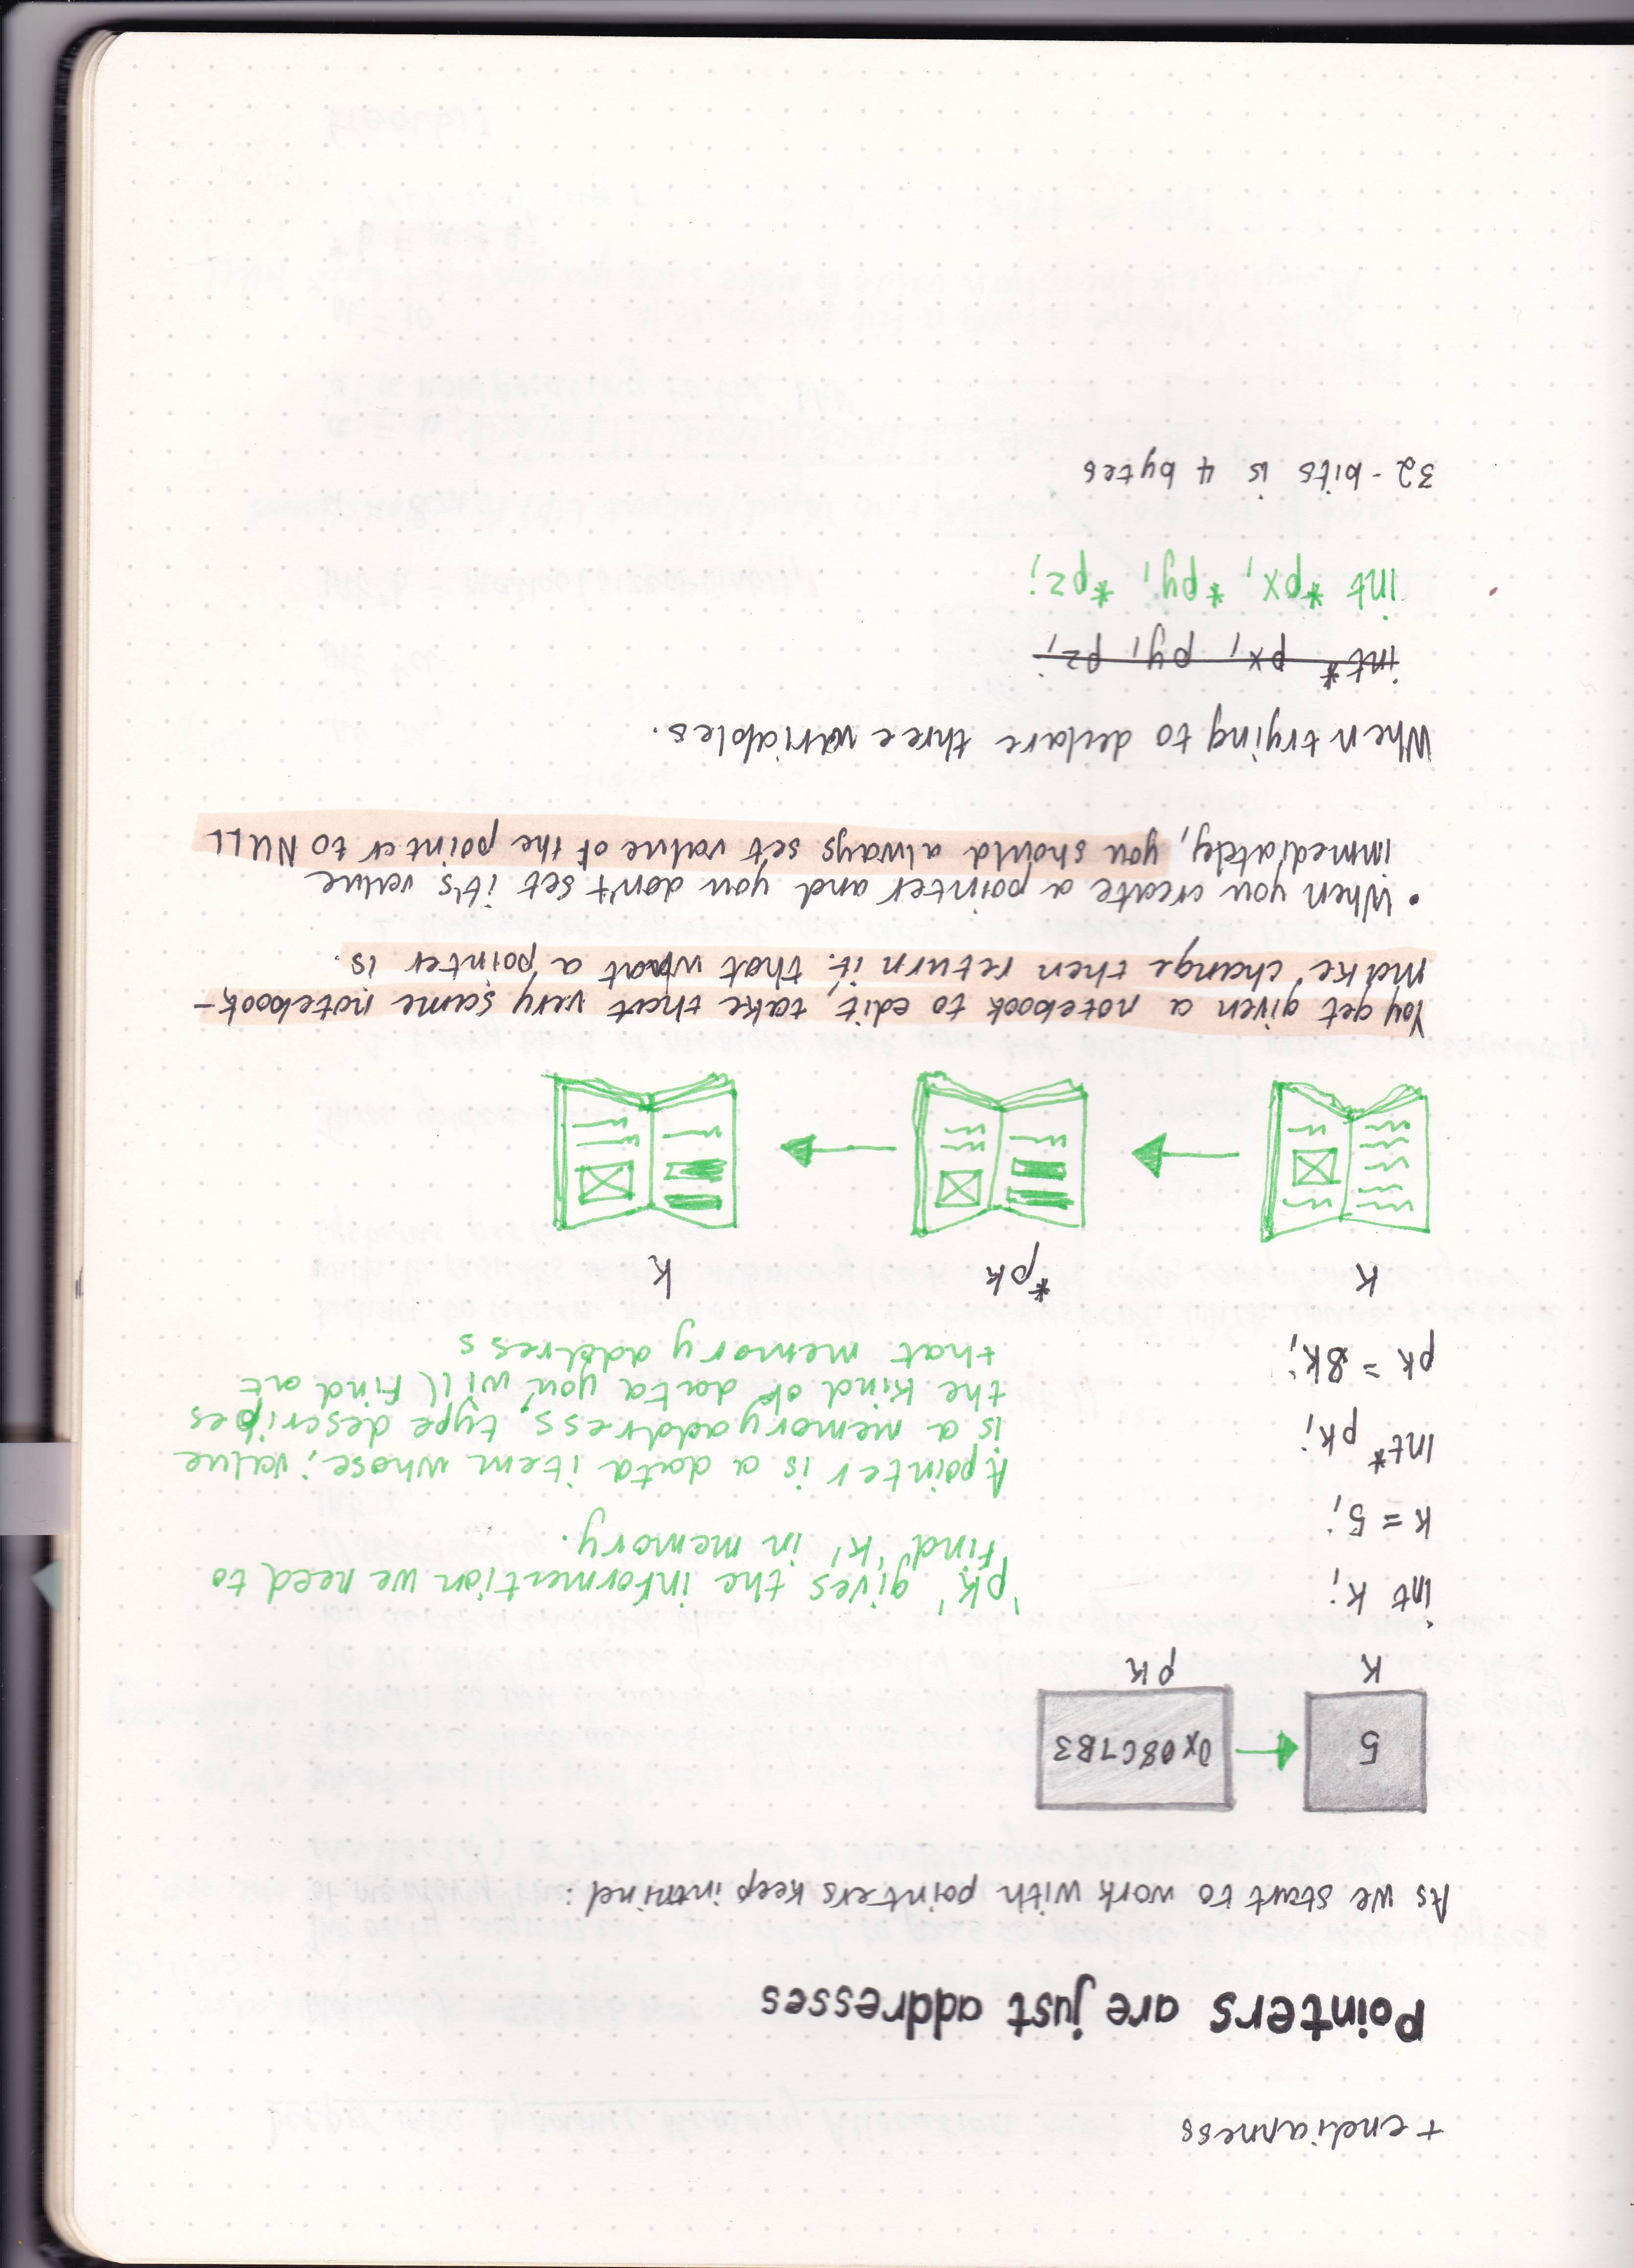 + endianness
Pointers are just addresses
As we start to work with pointers keep in mind:
5
0x08C7B3
K
pk
int k;
k = 5;
Int* pk;
pk = &k;
'pk' gives the information we need to
find 'k' in memory.
A pointer is a data item whose; value
is a memory address, type describes
the kind of data you will find at
that memory address
K
*pk
k
You get given a notebook to edit, take that very same notebook-
make change then return it. that what a pointer is.
• When you create a pointer and you don't set it's value
immediately, you should always set value of the pointer to NULL
When trying to declare three variables.
int* px, py, pz;
int *px, *py, *pz;
32-bits is 4 bytes